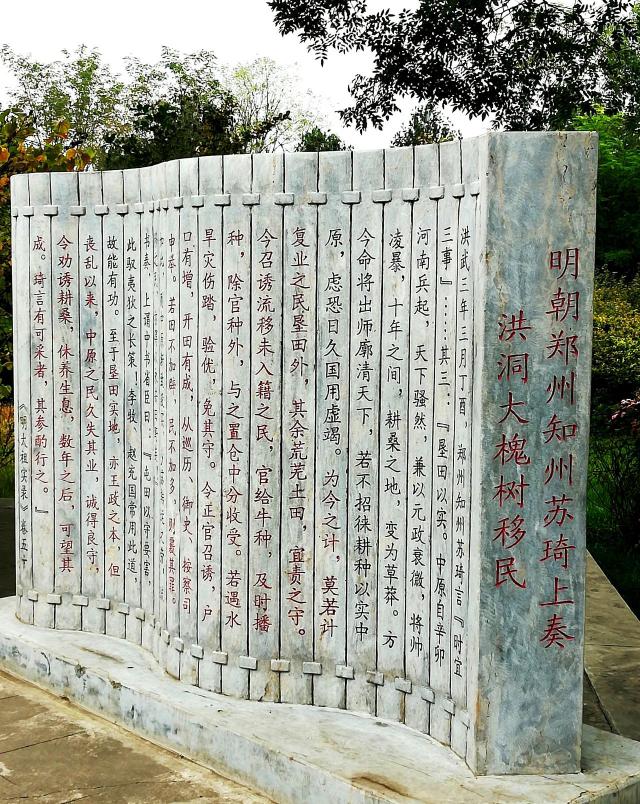 明朝郑州知州苏琦上奏
洪洞大槐树移民
洪武三年三月丁酉，郑州知州苏琦言『时宜
三事』……其三：『垦田以实。中原自辛卯
河南兵起，天下骚然，兼以元政衰微，将帅
凌暴，十年之间，耕桑之地，变为草莽。方
今命将出师廓清天下，若不招徕耕种以实中
原，虑恐日久国用虚竭。为今之计，莫若计
复业之民垦田外，其余荒芜土田，宜责之守。
今召诱流移未入籍之民，官给牛种，及时播
种，除官种外，与之置仓中分收受。若遇水
旱灾伤踏，验优，免其守。令正官召诱，户
口有增，开田有成，从巡历、御史、按察司
申举。若田不加辟，民不加多，则覈其罪。
书奏，上诵中书省臣曰：『屯田以守要害，
此驭夷狄之长策！李牧、赵充国常用此道
故能有功。至于垦田实地，亦王政之本，但
丧乱以来，中原之民久失其业，诚得良守，
令劝诱耕桑，休养生息，数年之后，可望其
成。琦言有可采者，其参酌行之。』
《明太祖实录》卷五十